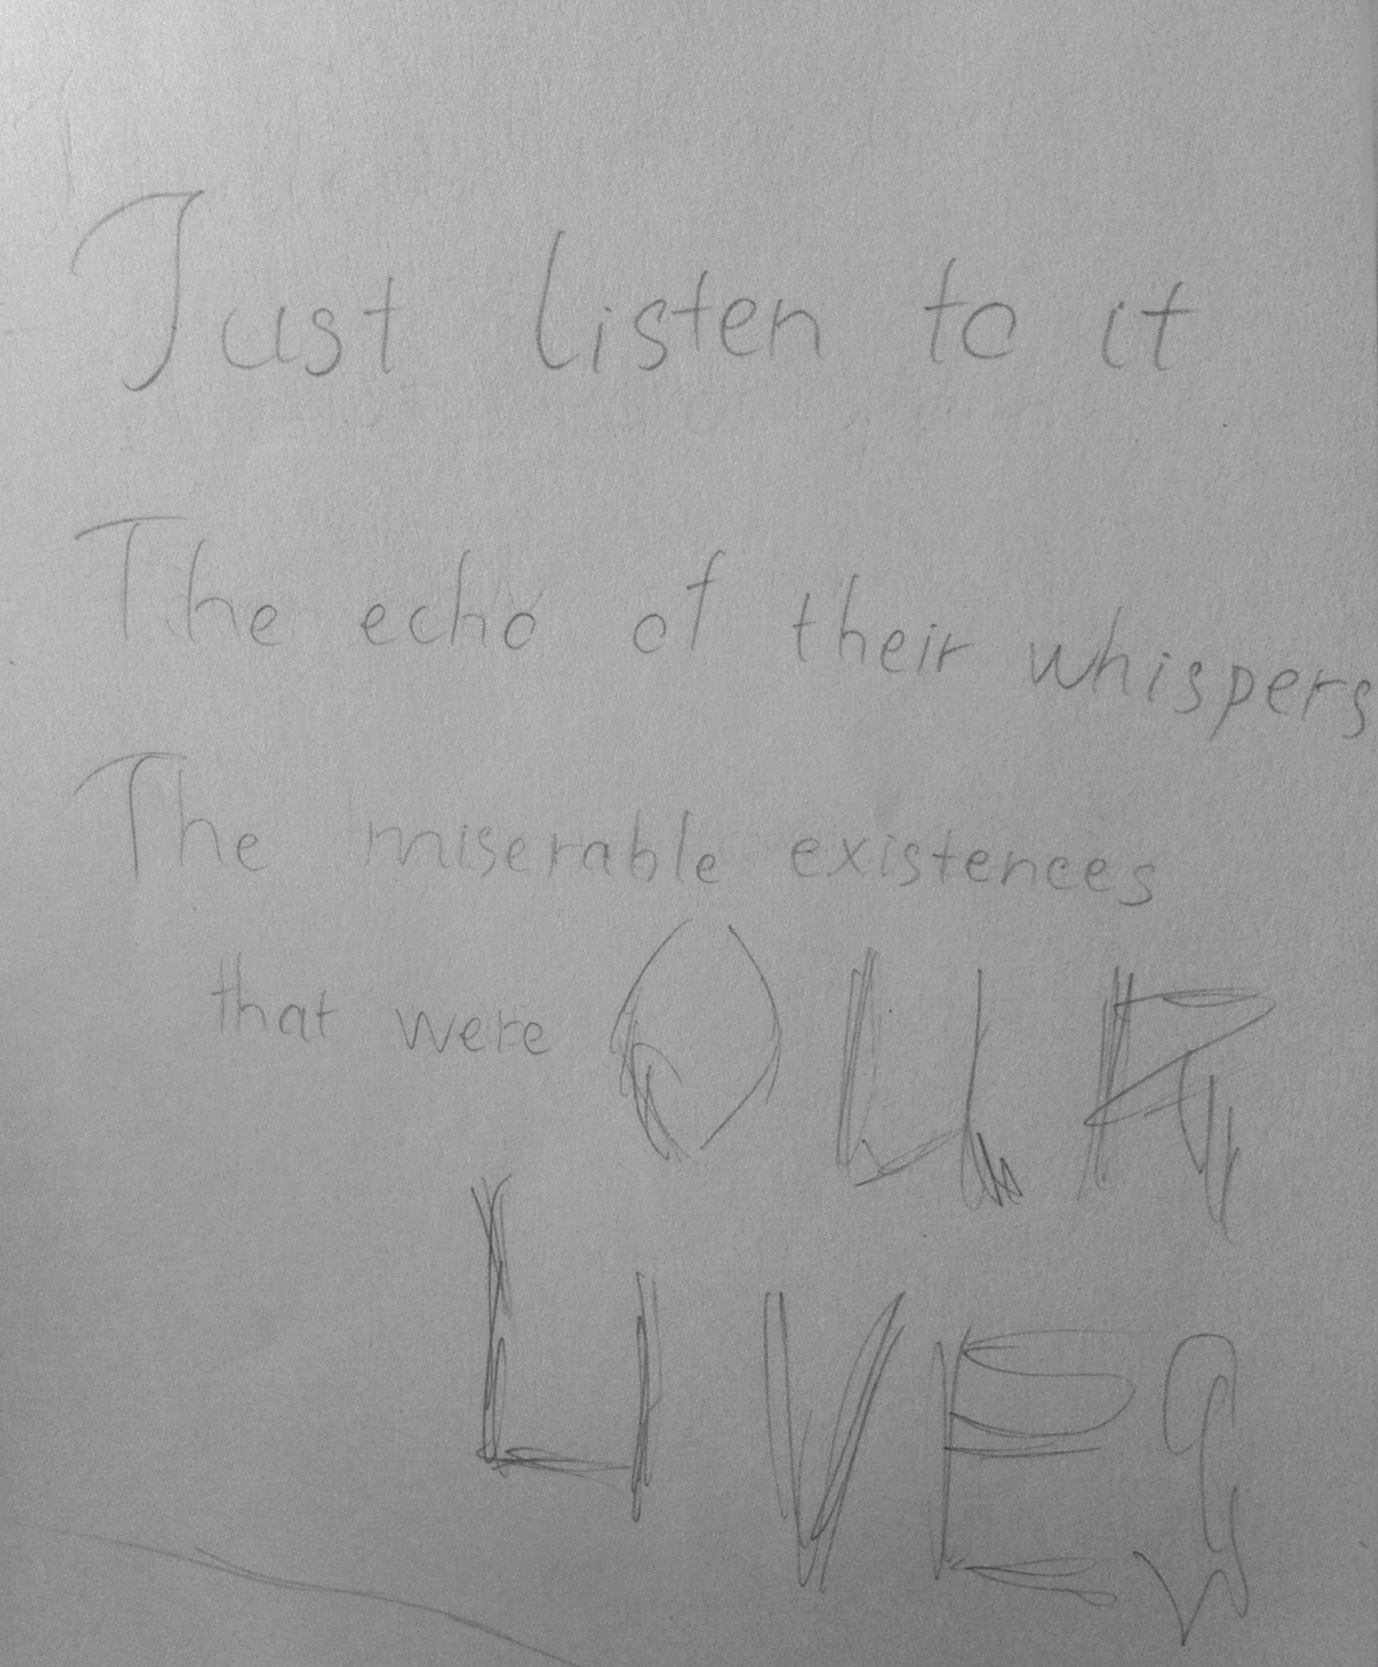 Just listen to it
The echo of their whispers
The miserable existences
that were OUR
LIVES